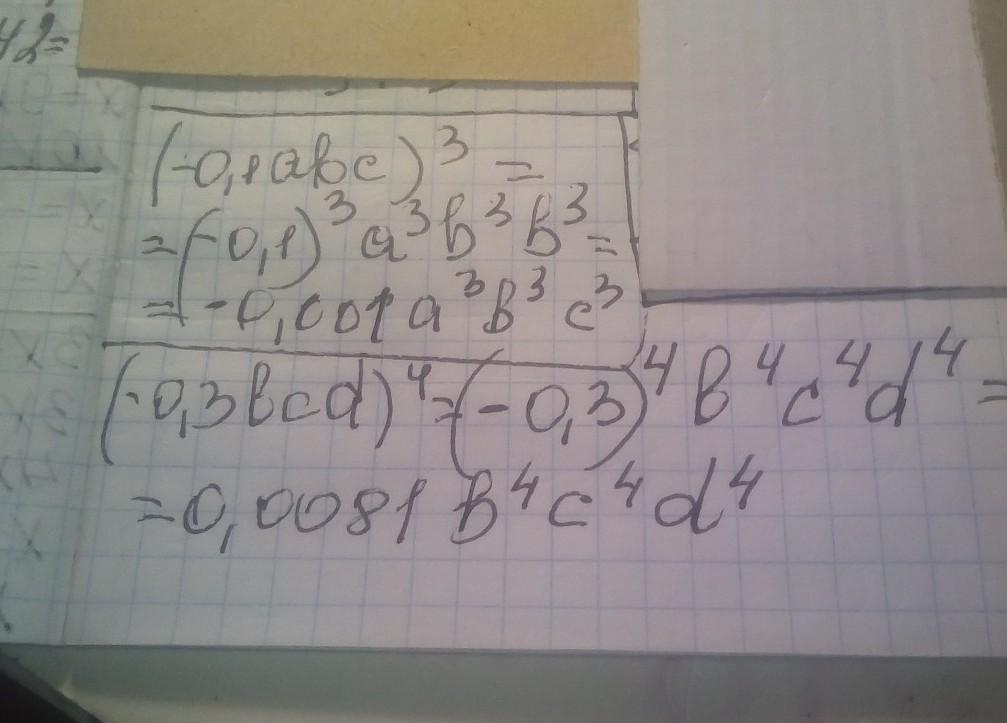 42=
(-0,1abc)³ =
=(-0,1)³a³b³b³=
=-0,001a³b³c³
(-0,3bcd)⁴=(-0,3)⁴b⁴c⁴d⁴=
=0,0081b⁴c⁴d⁴